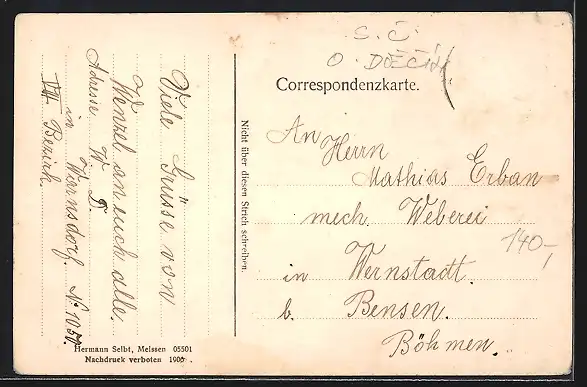 S. Č.
O. DĚČÍN
Correspondenzkarte.
Viele Grüsse von
Wenzel an euch alle.
Adresse W. D.
in Warnsdorf. N: 1050.
VII. Bezirk.
Nicht über diesen Strich schreiben.
An
Herrn
Mathias Erban
mech. Weberei
140,-
in Wernstadt.
b. Bensen.
Böhmen.
Hermann Seibt, Meissen 05501
Nachdruck verboten 190